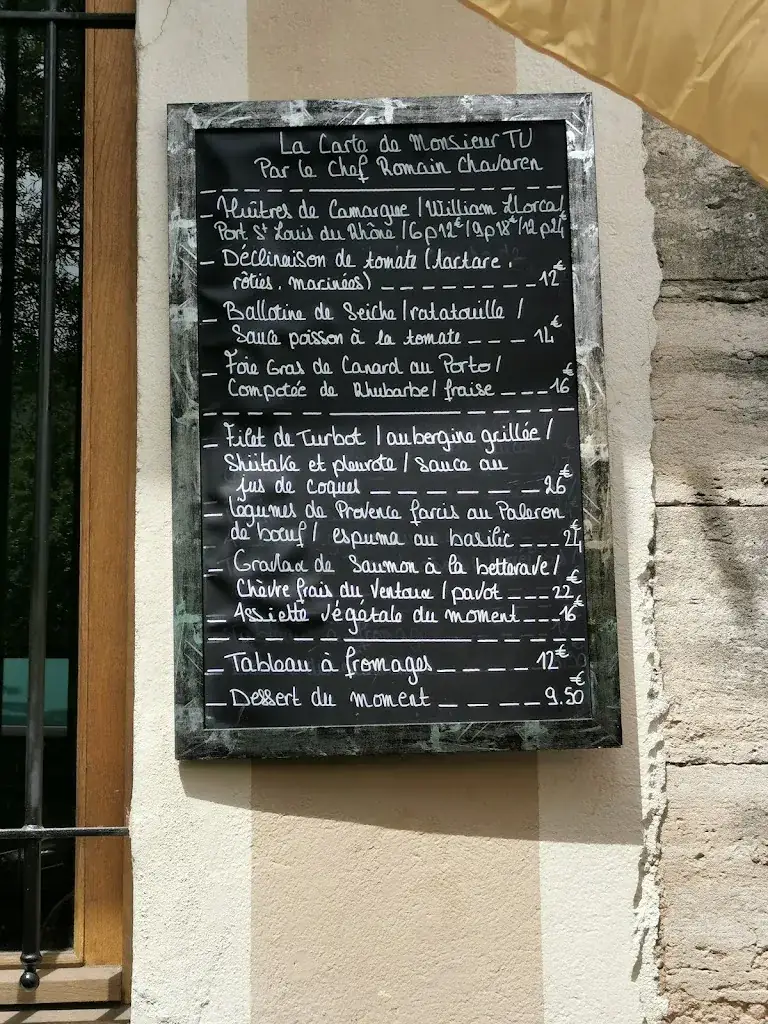 La Carte de Monsieur TU
Par le Chef Romain Chavaren
_ Huîtres de Camargue / William Llorca /
Port St Louis du Rhône / 6p 12€ / 9p 18€ / 12p 24€
_ Déclinaison de tomate (tartare,
rôties, marinées) _ _ _ _ _ _ _ _ 12€
_ Ballotine de Seiche / ratatouille /
Sauce poisson à la tomate _ _ _ 14€
_ Foie Gras de Canard au Porto /
Compotée de Rhubarbe / fraise _ _ _ 16€
_ Filet de Turbot / aubergine grillée /
Shiitaké et pleurote / sauce au
jus de coques _ _ _ _ _ _ _ _ 26€
_ légumes de Provence farcis au Paleron
de bœuf / espuma au basilic _ _ _ 24€
_ Gravlax de Saumon à la betterave /
Chèvre frais du Ventoux / pavot _ _ _ 22€
_ Assiette végétale du moment _ _ _ 16€
_ Tableau à fromages _ _ _ _ _ 12€
_ Dessert du moment _ _ _ _ _ 9.50€